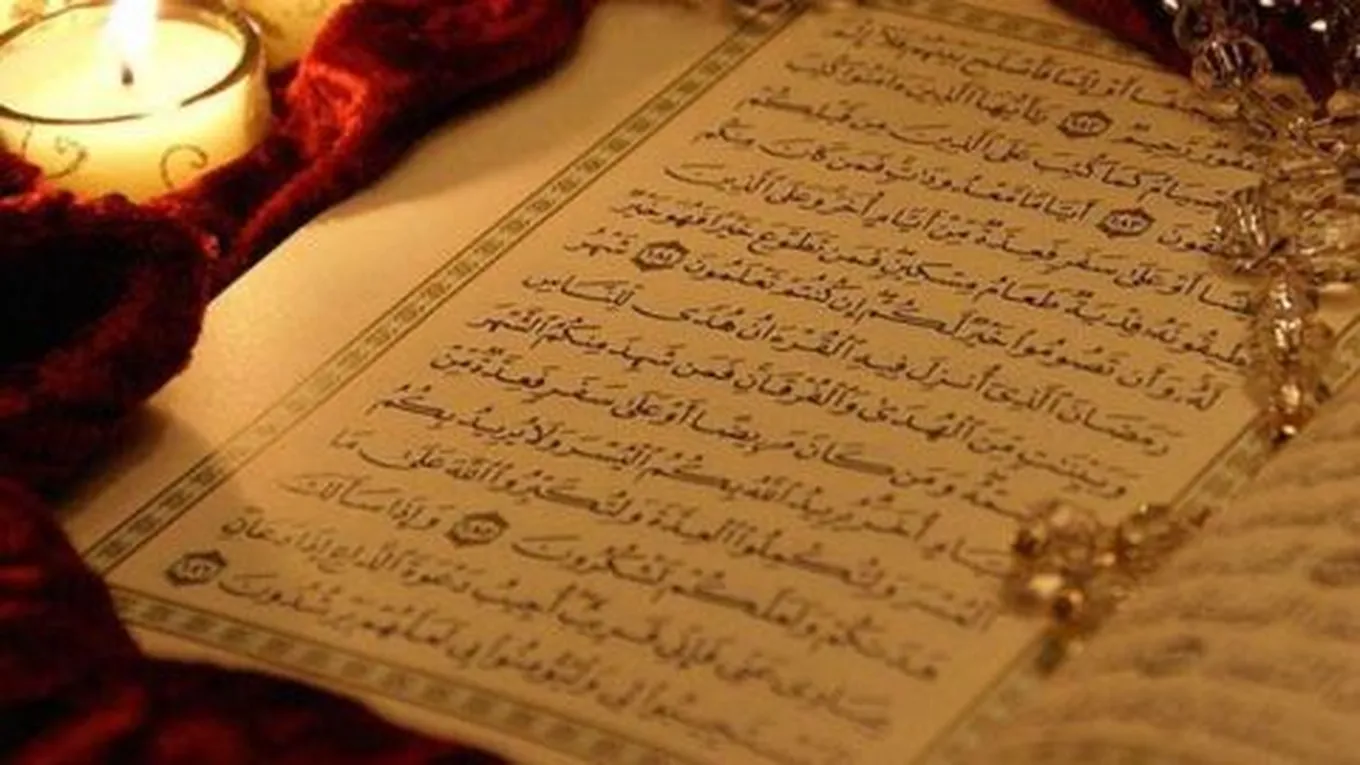 أَوْ إِثْمًا فَأَصْلَحَ بَيْنَهُمْ فَلَآ إِثْمَ
غَفُورٌ رَّحِيمٌ ١٨٢ يَٰٓأَيُّهَا ٱلَّذِينَ ءَامَنُوا۟ كُتِبَ
ٱلصِّيَامُ كَمَا كُتِبَ عَلَى ٱلَّذِينَ مِن قَبْلِكُمْ
تَتَّقُونَ ١٨٣ أَيَّامًا مَّعْدُودَٰتٍ فَمَن كَانَ مِنكُم
مَّرِيضًا أَوْ عَلَىٰ سَفَرٍ فَعِدَّةٌ مِّنْ أَيَّامٍ أُخَرَ وَعَلَى ٱلَّذِينَ
يُطِيقُونَهُۥ فِدْيَةٌ طَعَامُ مِسْكِينٍ فَمَن تَطَوَّعَ خَيْرًا فَهُوَ خَيْرٌ
لَّهُۥ وَأَن تَصُومُوا۟ خَيْرٌ لَّكُمْ إِن كُنتُمْ تَعْلَمُونَ ١٨٤ شَهْرُ
رَمَضَانَ ٱلَّذِىٓ أُنزِلَ فِيهِ ٱلْقُرْءَانُ هُدًى لِّلنَّاسِ
وَبَيِّنَٰتٍ مِّنَ ٱلْهُدَىٰ وَٱلْفُرْقَانِ فَمَن شَهِدَ مِنكُمُ ٱلشَّهْرَ
فَلْيَصُمْهُ وَمَن كَانَ مَرِيضًا أَوْ عَلَىٰ سَفَرٍ فَعِدَّةٌ مِّنْ
أَيَّامٍ أُخَرَ يُرِيدُ ٱللَّهُ بِكُمُ ٱلْيُسْرَ وَلَا يُرِيدُ بِكُمُ
ٱلْعُسْرَ وَلِتُكْمِلُوا۟ ٱلْعِدَّةَ وَلِتُكَبِّرُوا۟ ٱللَّهَ عَلَىٰ مَا
هَدَىٰكُمْ وَلَعَلَّكُمْ تَشْكُرُونَ ١٨٥ وَإِذَا سَأَلَكَ
عِبَادِى عَنِّى فَإِنِّى قَرِيبٌ أُجِيبُ دَعْوَةَ ٱلدَّاعِ إِذَا دَعَانِ
فَلْيَسْتَجِيبُوا۟ لِى وَلْيُؤْمِنُوا۟ بِى لَعَلَّهُمْ يَرْشُدُونَ ١٨٦